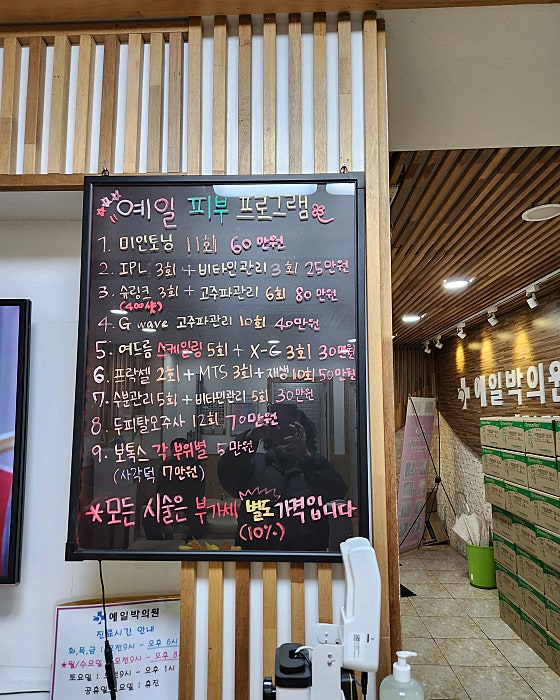 예일 피부 프로그램
1. 미인토닝 11회 60만원
2. IPL 3회 + 비타민관리 3회 25만원
3. 슈링크 3회 + 고주파관리 6회 80만원
(400샷)
4. G wave 고주파관리 10회 40만원
5. 여드름 스케일링 5회 + X-G 3회 30만원
6. 프락셀 2회 + MTS 3회 + 재생 10회 50만원
7. 수분관리 5회 + 비타민관리 5회 30만원
8. 두피탈모주사 12회 70만원
9. 보톡스 각 부위별 5만원
(사각턱 7만원)
*모든 시술은 부가세 별도 가격입니다
(10%)
예일박의원
예일박의원
진료시간 안내
화,목,금 : 오전9시 - 오후 6시
★월/수요일 : 오전9시 - 오후 8
토요일 : 오전9시 - 오후 1시
공휴일 요일 : 휴진